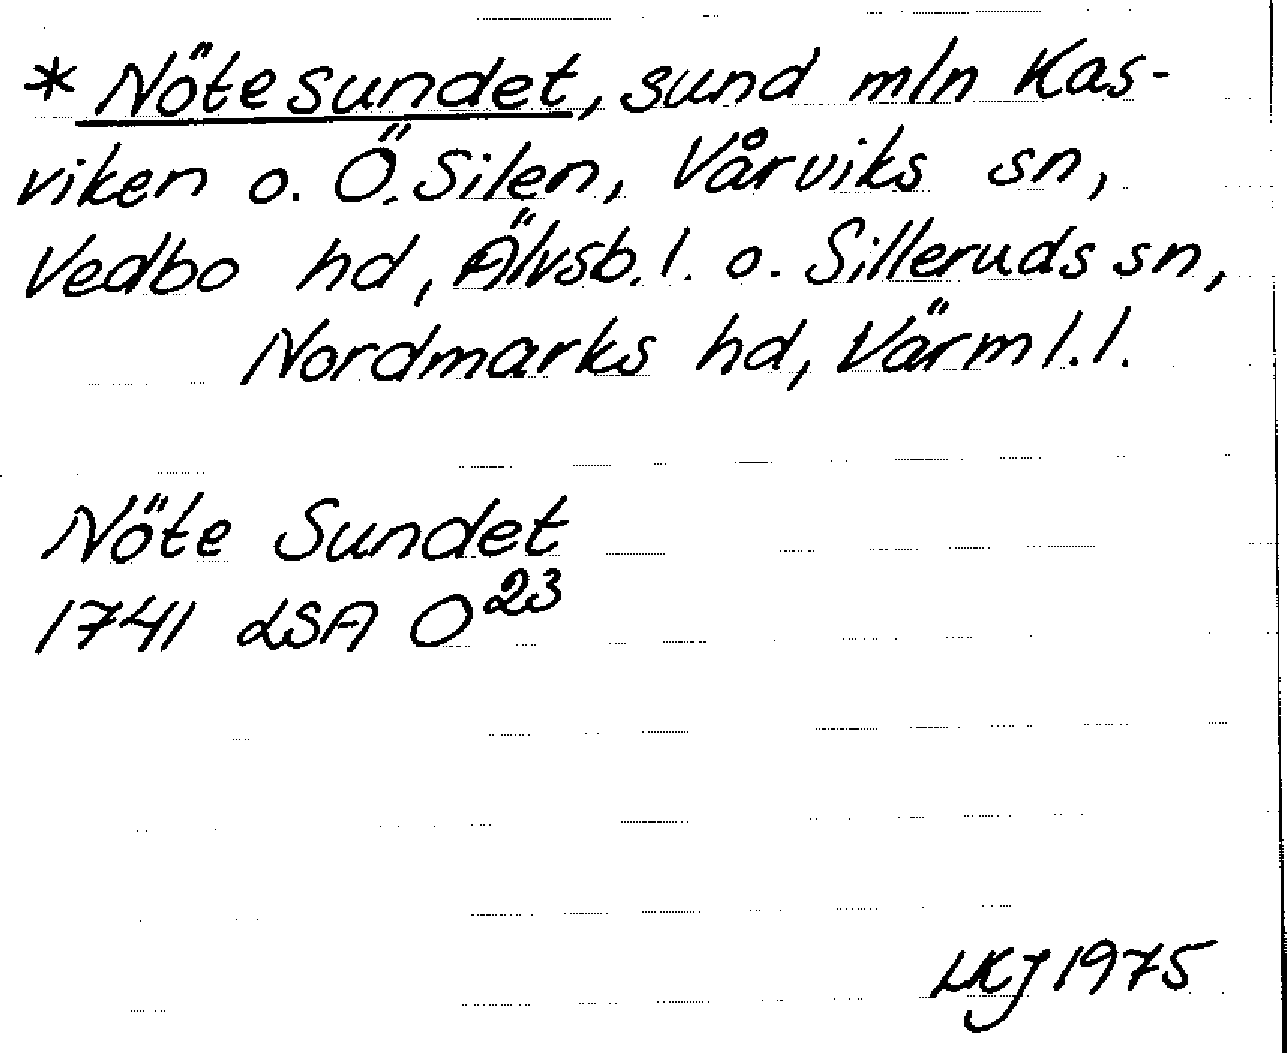 * Nötesundet, sund mln Kas-
viken o. Ö. Silen, Vårviks sn,
Vedbo hd, Älvsb. l. o. Silleruds sn,
Nordmarks hd, Värml. l.
Nöte Sundet
1741 LSA O23
LKJ 1975